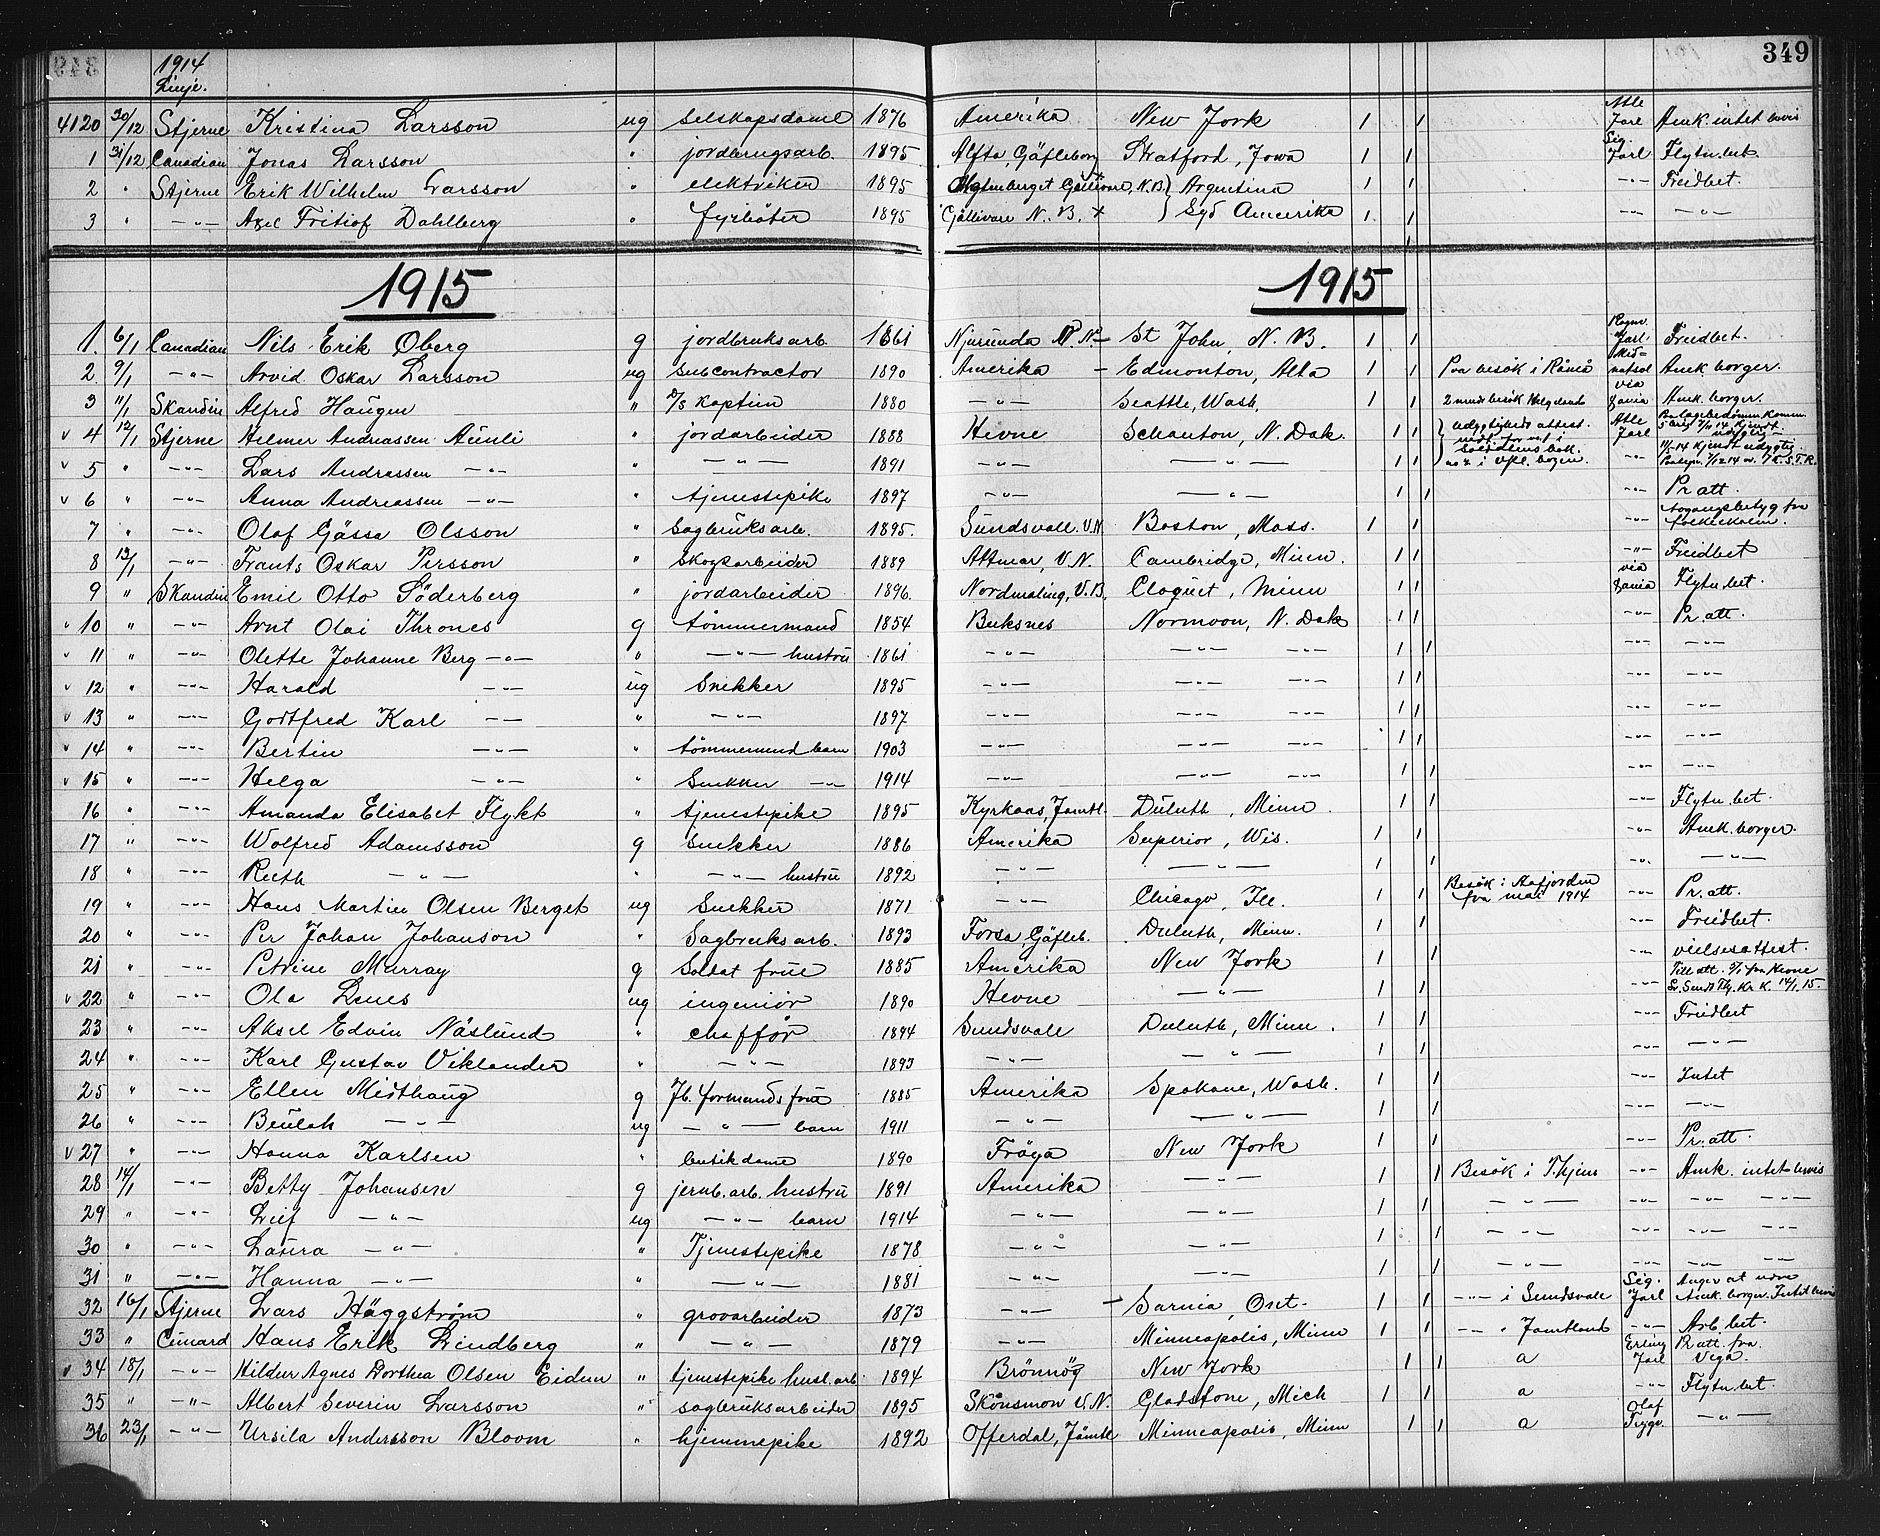 349
1914
Linje.
4120 30/12 Stjerne Kristina Larsson ug selskapsdame 1876 Amerika New York 1 1 Atle Jarl Amk. intet bevis
1 31/12 Canadian Jonas Larsson " jordbrugsarb. 1895 Alfta, Gäfleborg Stratford, Iowa 1 1 Sig. Jarl Flytn.bet.
2 " Stjerne Erik Wilhelm Larsson " elektriker 1895 Gällivare, N.B. } Argentina 1 1 -"- Freidbet.
3 " -"- Axel Fritiof Dahlberg " fyrbøter 1895 Gällivare N. B. } Syd Amerika 1 1 -"- -"-
1915 1915
1. 6/1 Canadian Nils Erik Øberg g jordbruksarb 1861 Njurunda V.N. St John, N. B. 1 1 Ragnv. Jarl Freidbet.
2. 9/1 -"- Arvid Oskar Larsson ug subcontractor 1890 Amerika - Edmonton, Alta 1 1 Paa besøk i Råneå Midnatsol Amk. borger.
3 11/1 Skandin Alfred Haugen " D/S kaptein 1880 -"- Seattle, Wash. 1 1 2 mndr besøk Helgeland via Zania Amk. borger.
v 4 12/1 Stjerne Helmer Andreassen Aunli " jordarbeider 1888 Hevne Schanton, N. Dak. 1 1 } udygtigheds attest. Atle Jarl
v 5 " -"- Lars Andreassen -"- " -"- 1891 -"- -"- 1 1 -"-
v 6 " -"- Anna Andreassen -"- " tjenestepike 1897 -"- -"- 1 1 -"- Pr att.
7 " -"- Olof Gässa Olsson " Sagbruksarb. 1895. Sundsvall. V.N. Boston, Mass. 1 1 -"- avgangsbetyg fra folkeskolen.
8 13/1 -"- Frants Oskar Persson " Skogsarbeider 1889 Attmar, V. N. Cambridge, Minn. 1 1 -"- Freidbet
9 " Skandin Emil Otto Söderberg " jordarbeider 1896. Nordmaling, V.B. Cloquet, Minn 1 1 via Zania Flytn.bet.
v 10 " -"- Arnt Olai Thrones g tömmermand 1854 Buksnes Normoon, N. Dak 1 1 -"- Pr. att.
v 11 " -"- Olette Johanne Berg -"- " -"- hustru 1861 -"- -"- -"- 1 1 -"- -"-
v 12 " -"- Harald -"- ug Snekker 1895 -"- -"- -"- 1 1 -"- -"-
v 13 " -"- Godtfred Karl -"- " -"- 1897 -"- -"- -"- 1 1 -"- -"-
v 14 " -"- Bertin -"- " tömmermand barn 1903 -"- -"- -"- 1 1 -"- -"-
v 15 " -"- Helga -"- " Snekker -"- 1914 -"- -"- -"- 1 1 -"- -"-
16 " -"- Amanda Elisabet Flykt " tjenestepike 1895 Kyrkaas, Jamtl. Duluth, Minn. 1 1 -"- Flytn.bet.
17 " -"- Wolfred Adamsson g Snekker 1886 Amerika Superior, Wis. 1 1 -"- Amk. borger.
18 " -"- Ruth -"- " -"- hustru 1892 -"- -"- 1 1 -"- -"-
19 " -"- Hans Martin Olsen Berget ug Snekker 1871 -"- Chicago, Ill. 1 1 Besøk i Aafjorden fra mai 1914 -"- Pr. att.
20 " -"- Per Johan Johanson " Sagbruksarb. 1893 Forsa, Gäfleb. Duluth, Minn. 1 1 -"- Freidbet.
21 " -"- Petrine Murray g Soldat frue 1885 Amerika New York 1 1 -"- vielsesattest.
v 22 " -"- Ola Lenes ug ingeniør 1890 Hevne -"- 1 1 -"-
23 " -"- Aksel Edvin Näslund " chaffør 1894 Sundsvall Duluth, Minn. 1 1 -"- Freidbet
24 " -"- Karl Gustav Viklander " -"- 1893 -"- -"- 1 1 -"- -"-
25 " -"- Ellen Midthaug g Jb. formands frue 1885 Amerika Spokane, Wash. 1 1 -"- Intet
26 " -"- Beulah -"- ug -"- barn 1911 -"- -"- 1 1 -"- -"-
v 27 " -"- Hanna Karlsen " butikdame 1890 Frøya New York 1 1 -"- Pr. att.
28 14/1 -"- Betty Johansen g jernb. arb. hustru 1891 Amerika -"- 1 1 Besøk i Thjem -"- Amk. intet bevis
29 " -"- Leif -"- ug -"- barn 1914 -"- -"- 1 1 -"- -"- -"- -"-
30 " -"- Laura -"- " Tjenestepike 1878 -"- -"- 1 1 -"- -"- -"- -"-
31 " -"- Hanna -"- " -"- 1881 -"- -"- 1 1 -"- -"- -"- -"-
32 16/1 Stjerne Lars Häggström " grovarbeider 1873 -"- Sarnia, Ont. 1 1 -"- i Sundsvall Sig. Jarl Angiv at være Amk. borger. Intet bevis
33 " Cunard Hans Erik Lindberg " -"- 1879 -"- Minneapolis, Minn 1 1 -"- " Jamtland -"- Arb. bet.
v 34 18/1 -"- Hildur Agnes Dorthea Olsen Eidem " tjenestepike husl. arb. 1894 Brönnöy New York 1 1 a Erling Jarl Pr. att. fra Vega.
35 " -"- Albert Severin Larsson " sagbruksarbeider 1895 Skönsmon V.N. Gladstone, Mich 1 1 a -"- Flytn.bet.
36 23/1 -"- Ursila Andersson Bloom " hjemmepike 1892 Offerdal, Jämtl Minneapolis, Minn 1 1 a Olaf Trygv. -"-